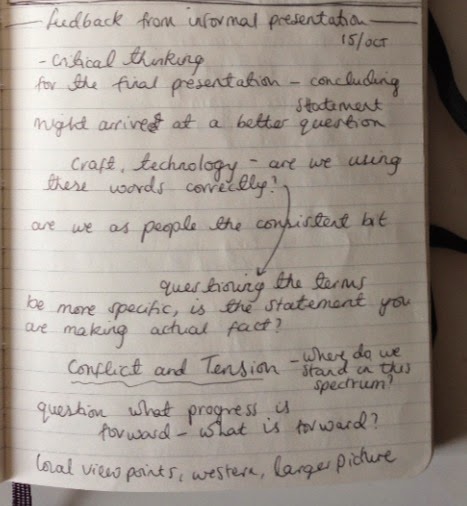 feedback from informal presentation
15/OCT
- Critical thinking
for the final presentation - concluding
statement
might arrived at a better question
Craft, technology - are we using
these words correctly?
are we as people the consistent bit
questioning the terms
be more specific, is the statement you
are making actual fact?
Conflict and Tension - where do we
stand in this
spectrum?
question what progress is
forward - what is forward?
local view points, western, larger picture